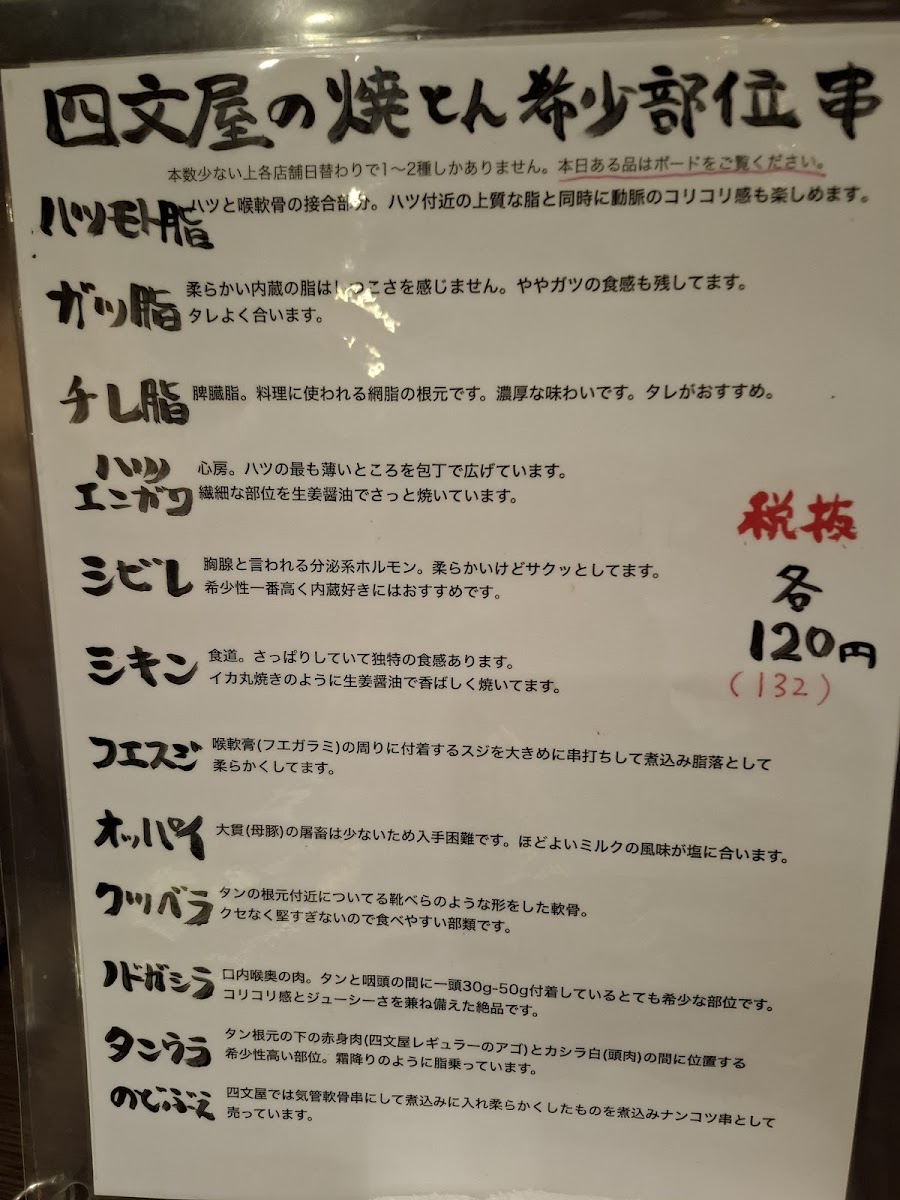 四文屋の焼とん希少部位串
本数少ない上各店舗日替わりで1〜2種しかありません。本日ある品はボードをご覧ください。
ハツモト脂
ハツと喉軟骨の接合部分。ハツ付近の上質な脂と同時に動脈のコリコリ感も楽しめます。
ガツ脂
柔らかい内蔵の脂はしつこさを感じません。ややガツの食感も残してます。
タレよく合います。
チレ脂
脾臓脂。料理に使われる網脂の根元です。濃厚な味わいです。タレがおすすめ。
ハツ
エンガワ
心房。ハツの最も薄いところを包丁で広げています。
繊細な部位を生姜醤油でさっと焼いています。
税抜
各
120円
(132)
シビレ
胸腺と言われる分泌系ホルモン。柔らかいけどサクッとしてます。
希少性一番高く内蔵好きにはおすすめです。
ミキン
食道。さっぱりしていて独特の食感あります。
イカ丸焼きのように生姜醤油で香ばしく焼いてます。
フエスジ
喉軟膏(フエガラミ)の周りに付着するスジを大きめに串打ちして煮込み脂落として
柔らかくしてます。
オッパイ
大貫(母豚)の屠畜は少ないため入手困難です。ほどよいミルクの風味が塩に合います。
クツベラ
タンの根元付近についてる靴べらのような形をした軟骨。
クセなく堅すぎないので食べやすい部類です。
ノドガシラ
口内喉奥の肉。タンと咽頭の間に一頭30g-50g付着しているとても希少な部位です。
コリコリ感とジューシーさを兼ね備えた絶品です。
タンウラ
タン根元の下の赤身肉(四文屋レギュラーのアゴ)とカシラ白(頭肉)の間に位置する
希少性高い部位。霜降りのように脂乗っています。
のどぶえ
四文屋では気管軟骨串にして煮込みに入れ柔らかくしたものを煮込みナンコツ串として
売っています。